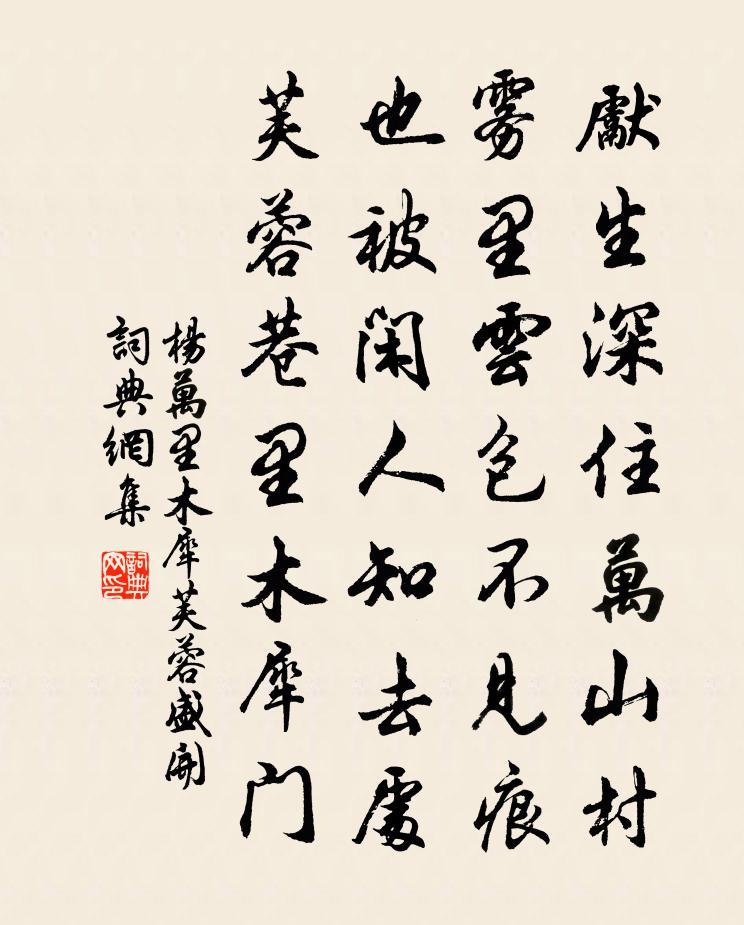 獻生深住萬山村
雾里雲色不見痕
也被閑人知去處
芙蓉巷里木犀門
楊萬里木犀芙蓉盛開
詞典網集
詞典网印